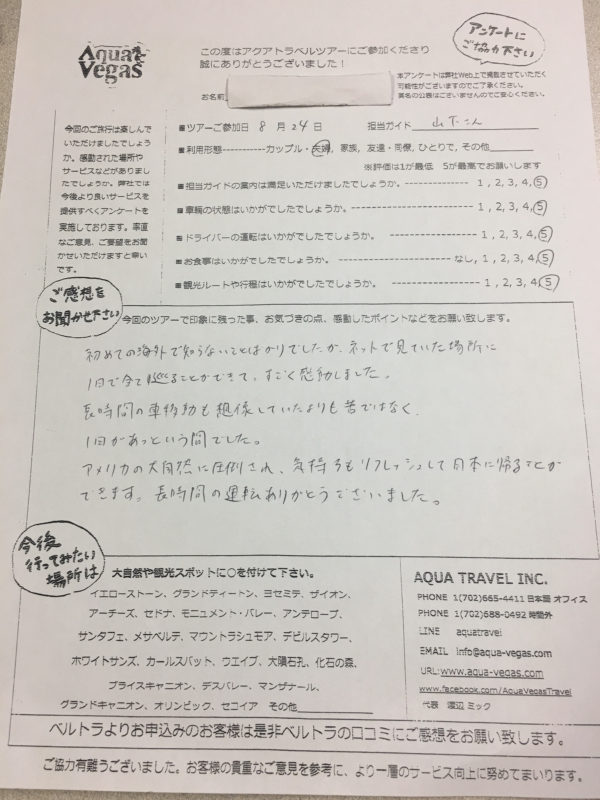 Aqua Vegas
この度はアクアトラベルツアーにご参加くださり
誠にありがとうございました！
アンケートに
ご協力下さい
本アンケートは弊社Web上で掲載させていただく
可能性がございますのでご了承ください。
実名の公表はございませんのでご安心ください。
お名前
今回のご旅行は楽しんで
いただけましたでしょう
か。感動された場所や
サービスなどがありまし
たでしょうか。弊社では
今後より良いサービスを
提供すべくアンケートを
実施しております。率直
なご意見、ご要望をお聞
かせいただけますと幸い
です。
■ツアーご参加日 8 月 24 日 担当ガイド 山下さん
■利用形態-----------カップル・夫婦, 家族, 友達・同僚, ひとりで, その他
※評価は1が最低 5が最高でお願いします
■担当ガイドの案内は満足いただけましたでしょうか。-------------- 1, 2, 3, 4, 5
■車輌の状態はいかがでしたでしょうか。-------------------------- 1, 2, 3, 4, 5
■ドライバーの運転はいかがでしたでしょうか。-------------------- 1, 2, 3, 4, 5
■お食事はいかがでしたでしょうか。------------------------ なし, 1, 2, 3, 4, 5
■観光ルートや行程はいかがでしたでしょうか。-------------------- 1, 2, 3, 4, 5
ご感想を
お聞かせ下さい
今回のツアーで印象に残った事、お気づきの点、感動したポイントなどをお願い致します。
初めての海外で知らないことばかりでしたが、ネットで見ていた場所に
1日で全て巡ることができて、すごく感動しました。
長時間の車移動も想像していたよりも苦ではなく、
1日があっという間でした。
アメリカの大自然に圧倒され、気持ちもリフレッシュして日本に帰ることが
できます。長時間の運転ありがとうございました。
今後
行ってみたい
場所は
大自然や観光スポットに○を付けて下さい。
イエローストーン、グランドティートン、ヨセミテ、ザイオン、
アーチーズ、セドナ、モニュメント・バレー、アンテロープ、
サンタフェ、メサベルデ、マウントラシュモア、デビルスタワー、
ホワイトサンズ、カールスバット、ウエイブ、大隕石孔、化石の森、
ブライスキャニオン、デスバレー、マンザナール、
グランドキャニオン、オリンピック、セコイア その他
AQUA TRAVEL INC.
PHONE 1(702)665-4411 日本語 オフィス
PHONE 1(702)688-0492 時間外
LINE aquatravel
EMAIL info@aqua-vegas.com
URL:www.aqua-vegas.com
www.facebook.com/AquaVegasTravel
代表 渡辺 ミック
ベルトラよりお申込みのお客様は是非ベルトラの口コミにご感想をお願い致します。
ご協力有難うございました。お客様の貴重なご意見を参考に、より一層のサービス向上に努めてまいります。